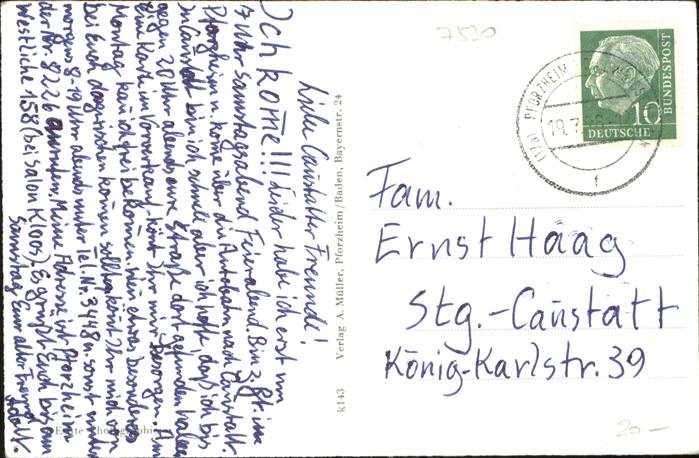 Liebe Cañstatter Freunde!
Ich kom̄e!!! Leider habe ich erst um
17 Uhr samstagabend Feierabend. Bin z. Zt. in
Pforzheim u. kom̄e über die Autobahn nach Cañstatt.
bin ich schnell aber ich hoffe daß ich bis
gegen 20 Uhr abends eure Straße dort gefunden habe.
Eine Karte im Vorverkauf köñt Ihr mir besorgen. Am
Montag kañ ich frei bekom̄en weñ etwas besonderes
bei Euch dazwischen kom̄en sollte köñt Ihr mich von
morgens 8-19 Uhr abends unter Tel. Nr. 3448 sonst unter
der Nr. 8226 anrufen. Meine Adresse ist Pforzheim
Westliche 158 (bei Salon Kloos) Es grüßt Euch bis zum
Samstag Euer alter Freund
Adolf.
Echte Photographie
k143 Verlag A. Müller, Pforzheim/Baden, Bayernstr. 24
7530
(17a) PFORZHEIM
18.7.
f
10
DEUTSCHE
BUNDESPOST
Fam.
Ernst Haag
Stg.-Cañstatt
König-Karlstr. 39
20-